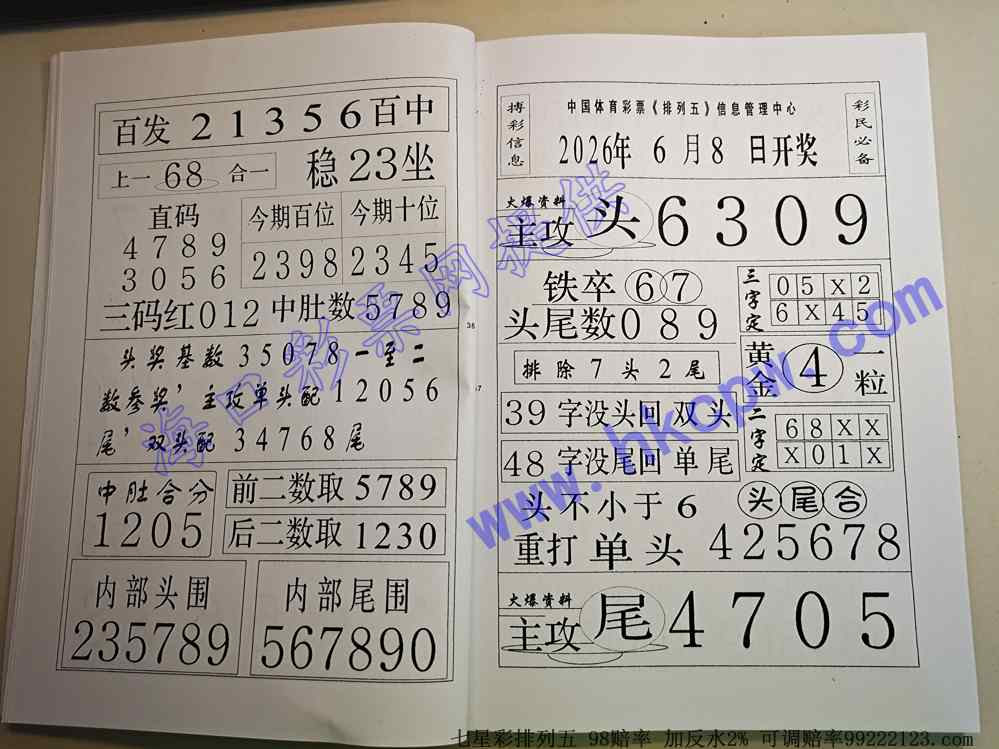 百发 21356 百中
上一 68 合一
稳 23 坐
直码
4789
3056
今期百位
2398
今期十位
2345
三码红012中肚数5789
头奖基数35078一至二
数参奖’主攻单头配12056
尾’双头配34768尾
中肚合分
1205
前二数取5789
后二数取1230
内部头围
235789
内部尾围
567890
36
37
搏彩信息
中国体育彩票《排列五》信息管理中心
2026年 6 月8 日开奖
彩民必备
火爆资料
主攻 头 6309
铁卒 67
头尾数089
排除7头2尾
39字没头回双头
48字没尾回单尾
三字定
05X2
6X45
黄金 4 一粒
二字定
68XX
X01X
头不小于6
头尾合
重打单头 425678
火爆资料
主攻 尾 4705
海口彩票网提供
www.hkcpw.com
七星彩排列五 98赔率 加反水2% 可调赔率99222123.com